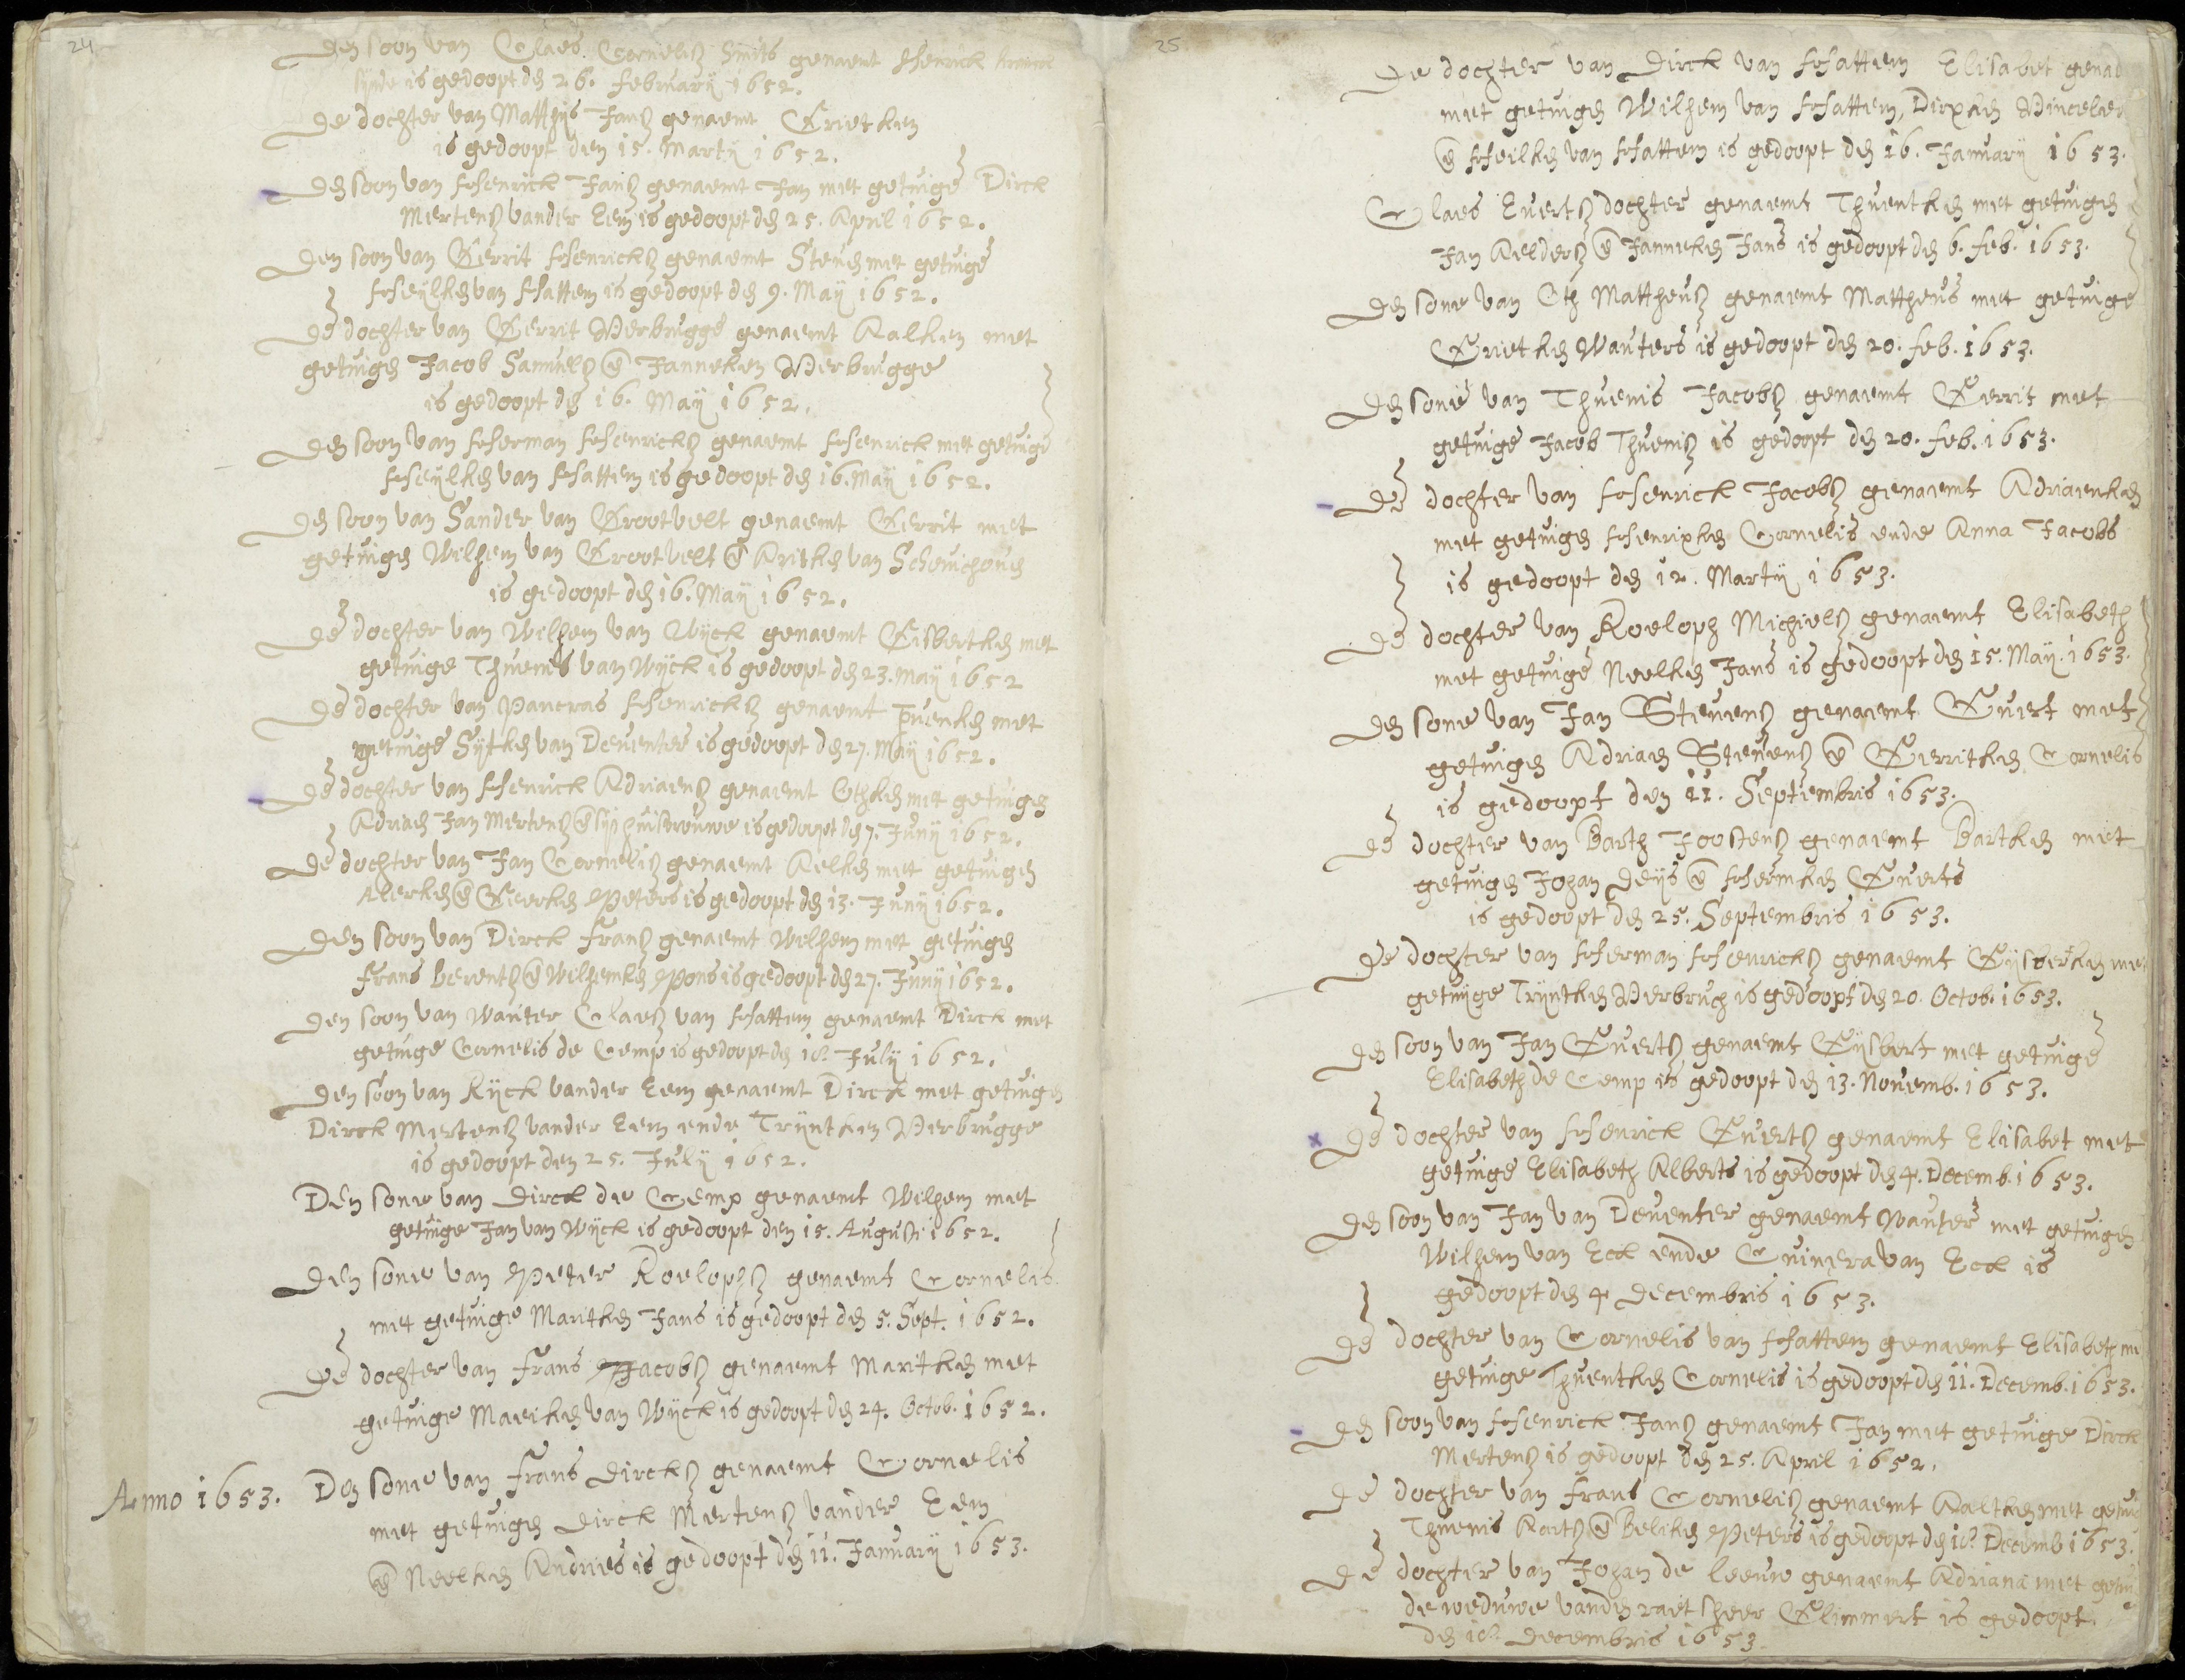 24
Den soon van Claes Cornelisz Smits genaemt Henrick
sijnde is gedoopt den 26. februarij 1652.
De dochter van Mathijs Jansz genaemt Grietken
is gedoopt den 15. Martij 1652.
Den soon van Henrick Jansz genaemt Jan met getuige Dirck
Mertensz vander Eem is gedoopt den 25. April 1652.
Den soon van Gerrit Henricksz genaemt Steven met getuige
Heijlken van Hattem is gedoopt den 9. Maij 1652.
De dochter van Gerrit Verbrugge genaemt Aalken met
getuigen Jacob Samuelsz en Janneken Verbrugge
is gedoopt den 16. Maij 1652.
Den soon van Herman Henricksz genaemt Henrick met getuige
Heijlken van Hattem is gedoopt den 16. Maij 1652.
Den soon van Sander van Grootvelt genaemt Gerrit met
getuigen Wilhem van Grootvelt en Aritken van Schonichoven
is gedoopt den 16. Maij 1652.
De dochter van Wilhem van Wijck genaemt Gisbertken met
getuige Thuenis van Wijck is gedoopt den 23. Maij 1652
De dochter van Pancras Henricksz genaemt met
getuige Sijtken van Deventer is gedoopt den 27. Maij 1652.
De dochter van Henrick Adriaensz genaemt Othken met getuigen
Adriaen Jan Mertensz en sijn huisvrouwe is gedoopt den 7. Junij 1652.
De dochter van Jan Cornelisz genaemt Aelken met getuigen
Alerken en Geerken Peters is gedoopt den 13. Junij 1652.
Den soon van Dirck Fransz genaemt Wilhem met getuigen
Frans Berentsz en Wilhemken Pons is gedoopt den 27. Junij 1652.
Den soon van Wauter Claesz van Hattem genaemt Dirck met
getuige Cornelis de Cemp is gedoopt den 18. Julij 1652.
Den soon van Rijck vander Eem genaemt Dirck met getuigen
Dirck Mertensz vander Eem ende Trijntken Verbrugge
is gedoopt den 25. Julij 1652.
Den sone van Dirck de Cemp genaemt Wilhem met
getuige Jan van Wijck is gedoopt den 15. Augusti 1652.
Den sone van Peter Roelophsz genaemt Cornelis
met getuige Maritken Jans is gedoopt den 5. Sept. 1652.
De dochter van Frans Jacobsz genaemt Maritken met
getuige Maeiken van Wijck is gedoopt den 24. Octob. 1652.
Anno 1653. Den sone van Frans Dircksz genaemt Cornelis
met getuigen Dirck Mertensz vander Eem
en Neelken Andries is gedoopt den 11. Januarij 1653.
25
De dochter van Dirck van Hattem Elisabet genad
met getuigen Wilhem van Hattem, Dirxken
en Heilken van Hattem is gedoopt den 16. Januarij 1653.
Claes Evertsz dochter genaemt Thuentken met getuigen
Jan Aeldersz en Janneken Jans is gedoopt den 6. feb. 1653.
Den sone van Oth Mattheusz genaemt Mattheus met getuige
Grietken Wauters is gedoopt den 20. feb. 1653.
Den sone van Thuenis Jacobsz genaemt Gerrit met
getuige Jacob Thuenisz is gedoopt den 20. feb. 1653.
De dochter van Henrick Jacobsz genaemt Adriaenken
met getuigen Henrixken Cornelis ende Anna Jacobs
is gedoopt den 12. Martij 1653.
De dochter van Roeloph Michielsz genaemt Elisabeth
met getuige Neelken Jans is gedoopt den 15. Maij. 1653.
Den sone van Jan Stevensz genaemt Evert met
getuigen Adriaen Stevensz en Gerritken Cornelis
is gedoopt den 11. Septembris 1653.
De dochter van Barth Joostensz genaemt Bartken met
getuigen Johan Deijs en Hermken Everts
is gedoopt den 25. Septembris 1653.
De dochter van Herman Henricksz genaemt Gijsberken met
getuijge Trijntken Verbruch is gedoopt den 20. Octob. 1653.
Den soon van Jan Evertsz genaemt Gijsbert met getuige
Elisabeth de Cemp is gedoopt den 13. Novemb. 1653.
De dochter van Henrick Evertsz genaemt Elisabet met
getuige Elisabeth Alberts is gedoopt den 4. Decemb. 1653.
Den soon van Jan van Deventer genaemt Wauter met getuigen
Wilhem van Eck ende Cuinera van Eck is
gedoopt den 4 Decembris 1653.
De dochter van Cornelis van Hattem genaemt Elisabeth me
getuige Thuentken Cornelis is gedoopt den 11. Decemb. 1653.
Den soon van Henrick Jansz genaemt Jan met getuige Dirck
Mertensz is gedoopt den 25. April 1652.
De dochter van Frans Cornelisz genaemt Aaltken met getui
Thuenis Aartsz en Beliken Peters is gedoopt den 18. Decemb 1653.
De dochter van Johan de Leeuw genaemt Adriana met getui
de weduwe vanden raetsheer Glimmert is gedoopt
den 18. Decembris 1653